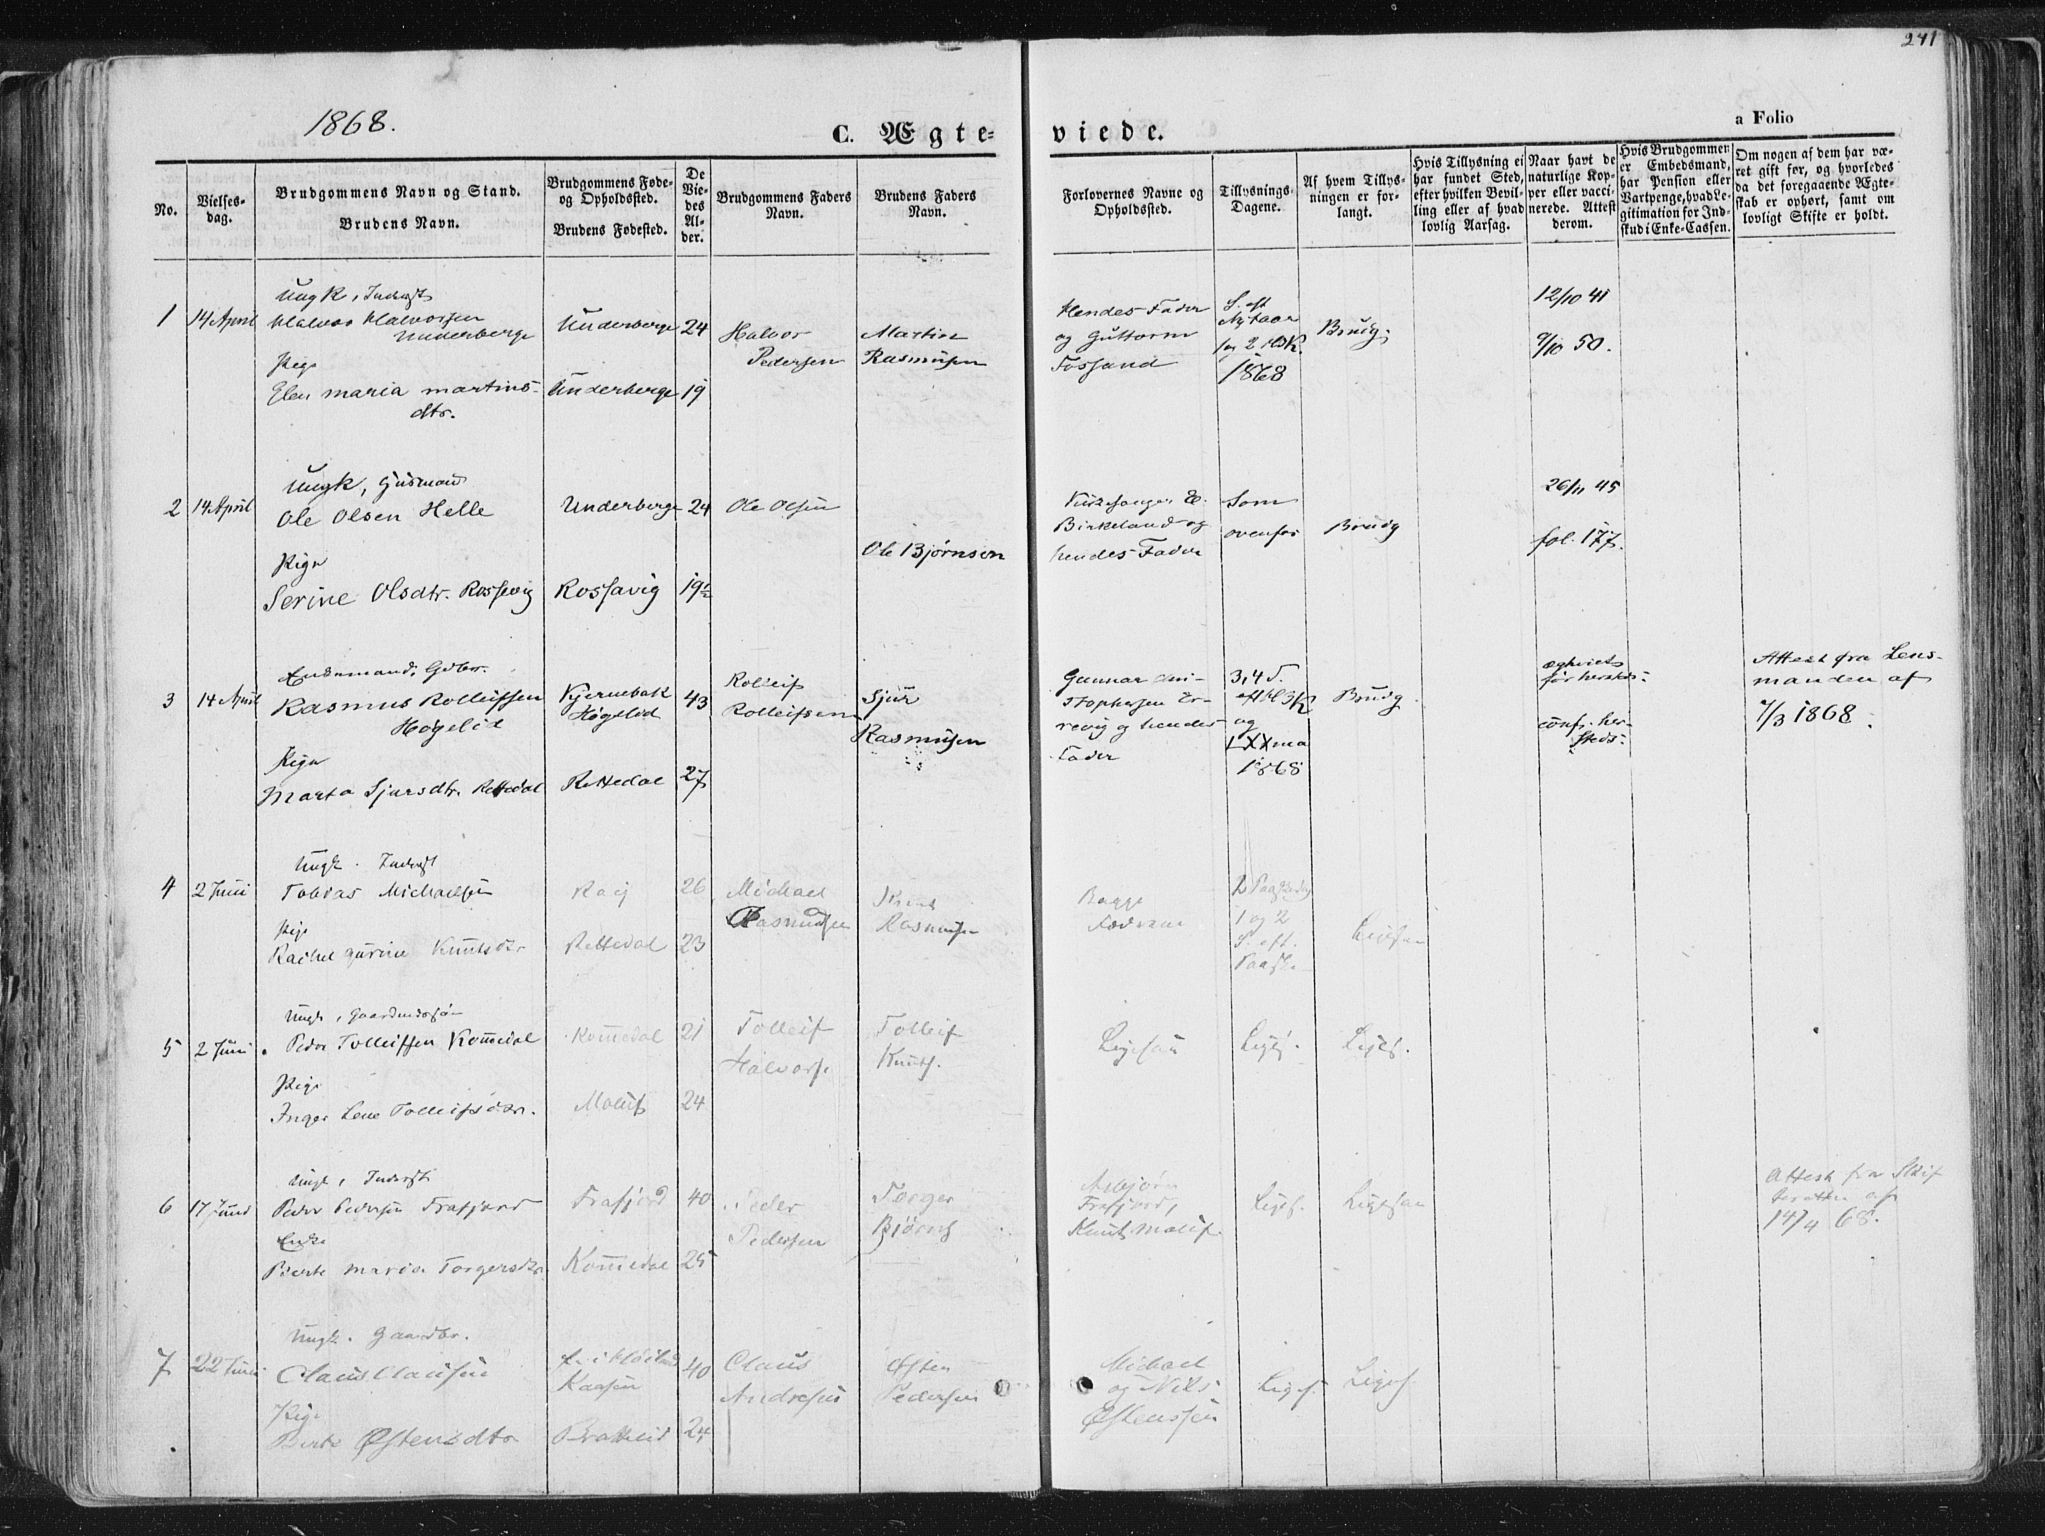 241
1868.
C. Ægte-
viede.
a Folio
No.
Vielses-
dag.
Brudgommens Navn og Stand.
Brudens Navn.
Brudgommens Føde-
og Opholdssted.
Brudens Fødested.
De
Vie-
des
Al-
der.
Brudgommens Faders
Navn.
Brudens Faders
Navn.
Forlovernes Navne og
Opholdssted.
Tillysnings-
Dagene.
Af hvem Tillys-
ningen er for-
langt.
Hvis Tillysning ei
har fundet Sted,
efter hvilken Bevil-
ling eller af hvad
lovlig Aarsag.
Naar havt de
naturlige Kop-
per eller vacci-
nerede. Attest
derom.
Hvis Brudgommen
er Embedsmand,
har Pension eller
Vartpenge, hvad Le-
gitimation for Ind-
skud i Enke-Cassen.
Om nogen af dem har væ-
ret gift før, og hvorledes
da det foregaaende Ægte-
skab er ophørt, samt om
lovligt Skifte er holdt.
1
14 April
Ungk, Inderst
Halvor Halvorsen
Underberge
Pige
Elen Maria Martins-
dtr.
Underberge
Underberge
24
19
Halvor
Pedersen
Martin
Rasmusen
Hendes Fader
og Guttorm
Fossand
S. eft
Nytaar
og 2 HsK.
1868
Brudg.
12/10 41
9/10 50.
2
14 April
Ungk, Husmand
Ole Olsen Helle
Pige
Serine Olsdtr. Rossavig
Underberge
Rossavig
24
19½
Ole Olsen
Ole Bjørnsen
Kirkesanger E.
Birkeland og
hendes Fader
Som
ovenfor
Brudg
26/11 45
fol. 177.
3
14 April
Enkemand, Gdbr.
Rasmus Rolleifsen
Høgelid
Pige
Marta Sjursdtr. Rettedal
Høgelid
Rettedal
43
27
Rolleif
Rolleifsen
Sjur
Rasmusen
Gunnar Chri-
stophersen Er-
revig og hendes
Fader
3, 4 S.
eft H 3 K
og
LXXma
1868
Brudg.
conf. her-
steds.
Attest fra Lens-
manden af
7/3 1868.
4
2 Juni
Ungk. Inderst
Tobias Michaelsen
Pige
Rachel Gurine Knutsdtr
Rettedal
26
23
Michael
Rasmusen
Knut
Rasmusen
Bagge
2 Paaskedag
1 og 2
S. eft.
Paaske
Ligesaa
5
2 Juni
Ungk, Gaardmdssøn
Peder Tolleifsen Kommedal
Pige
Inger Lene Tolleifsdtr.
Kommedal
21
24
Tolleif
Halvors.
Tolleif
Knuts.
Ligesaa
Liges.
Liges.
6
17 Juni
Ungk, Inderst
Peder Pedersen Frafjord
Enke
Bierte Maria Torgersdtr
Frafjord
Kommedal
40
25
Peder
Pedersen
Torger
Bjørns
Asbjørn
Frafjord,
Knut
Liges.
Ligesaa
Attest fra Skif
teretten af
14/4 68.
7
22 Juni
Ungk. Gaardbr.
Claus Clausen
Pige
Berte Østensdtr
Bratteid
40
24
Claus
Andresen
Østen
Pedersen
Michael
og Nils
Østensen
Liges.
Liges.